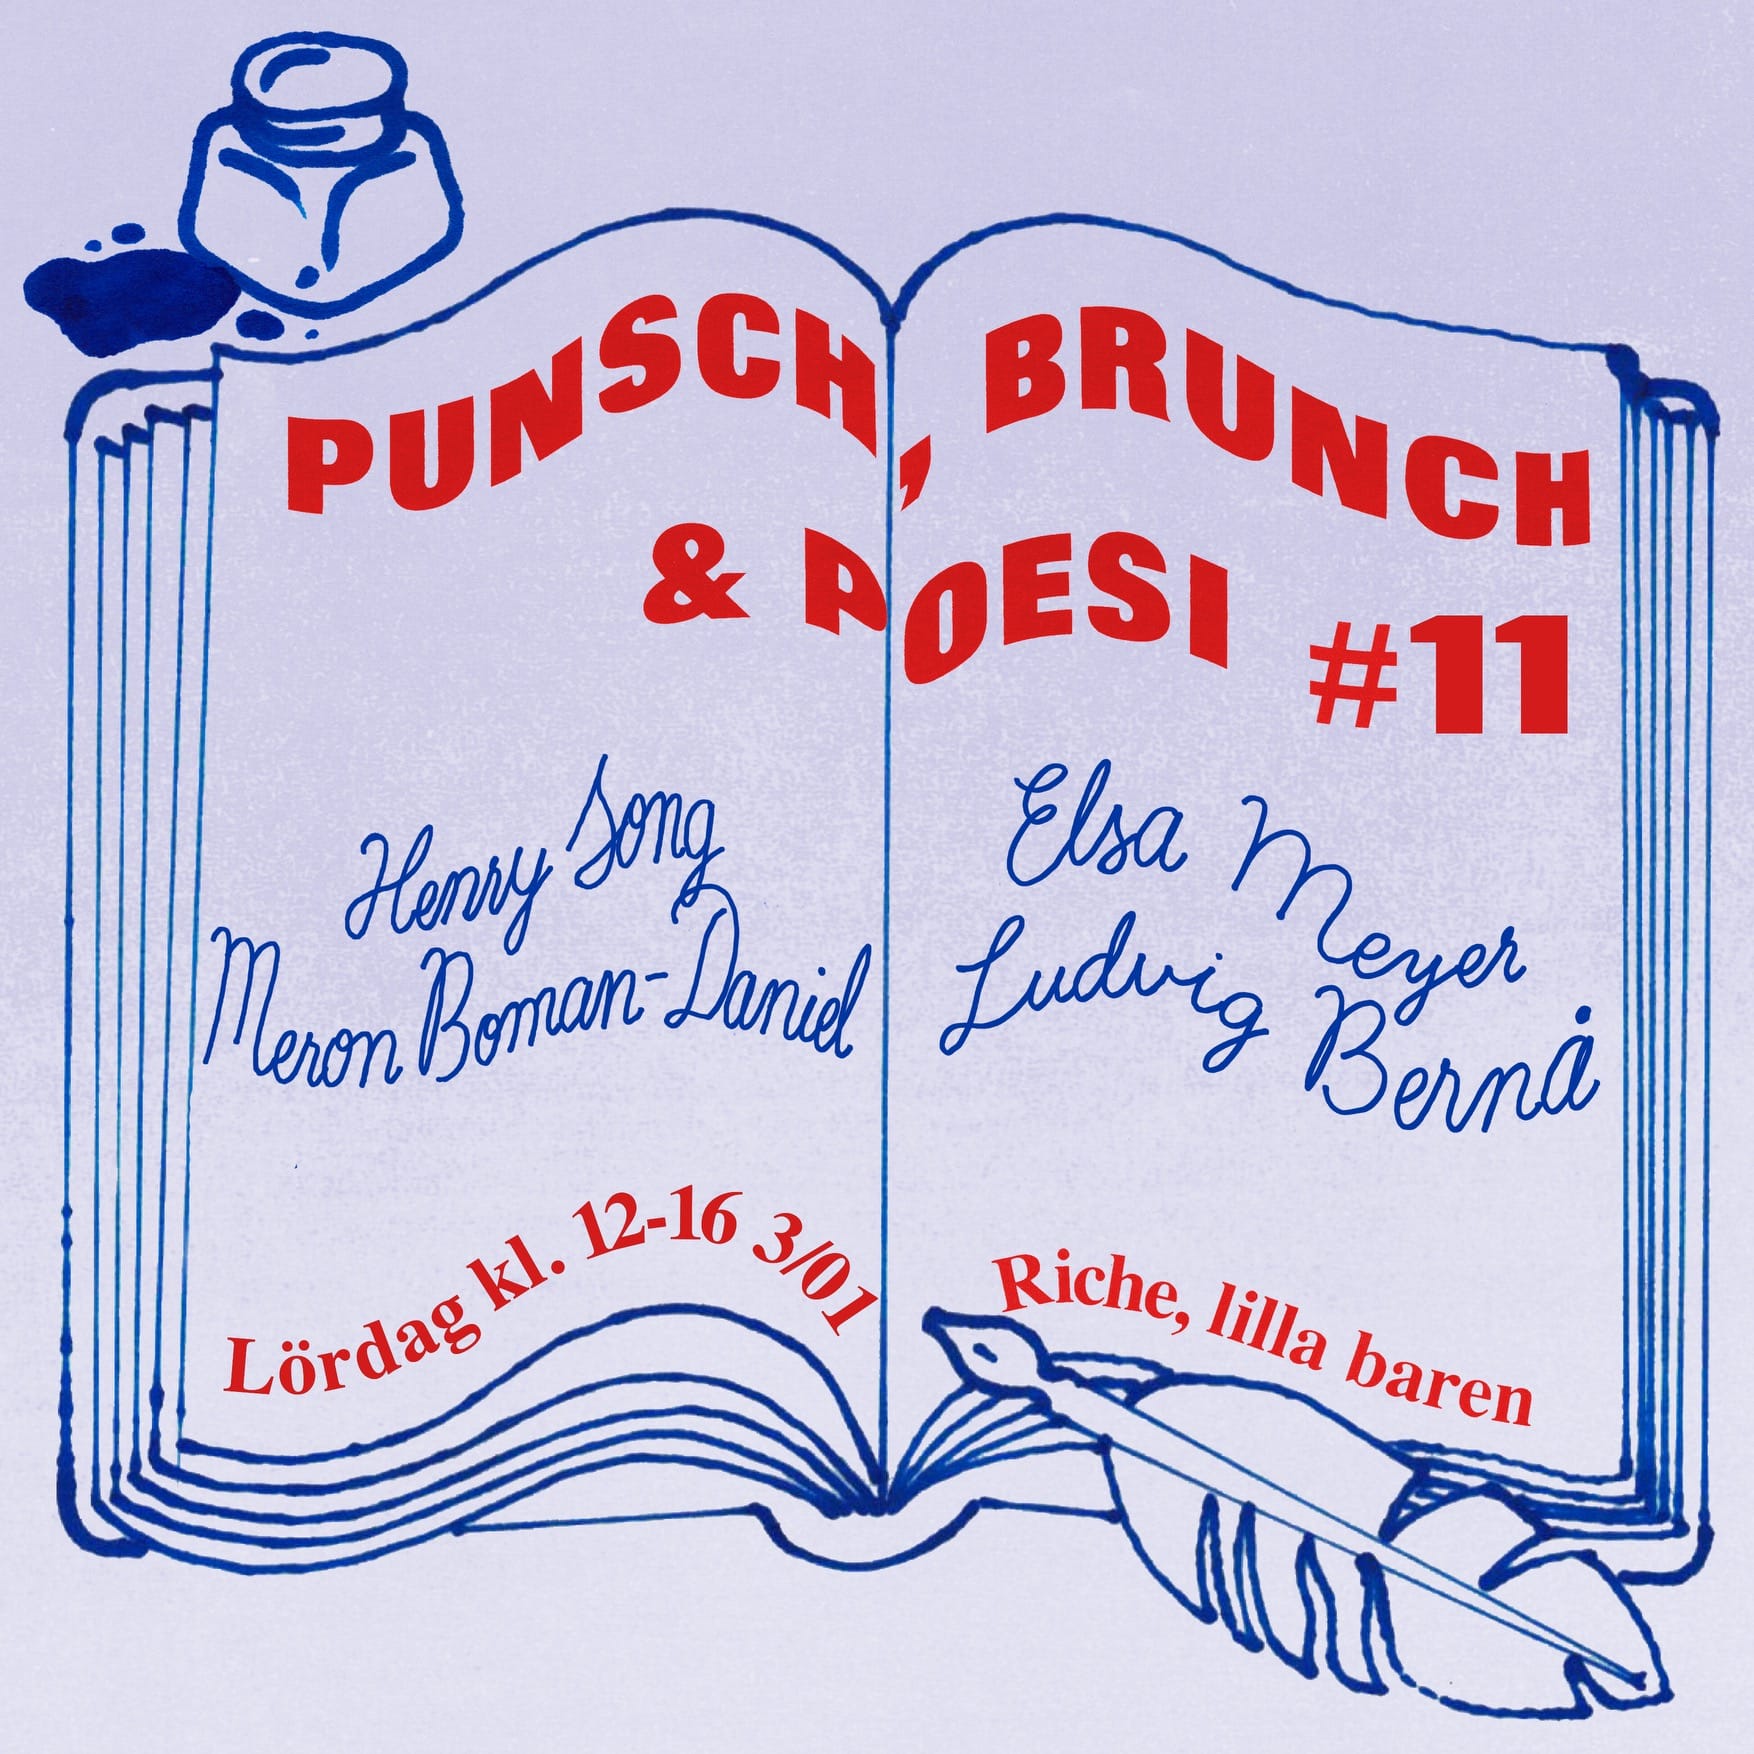 PUNSCH, BRUNCH
& POESI #11
Henry Song
Meron Boman-Daniel
Elsa Meyer
Ludvig Bernå
Lördag kl. 12-16 3/01
Riche, lilla baren